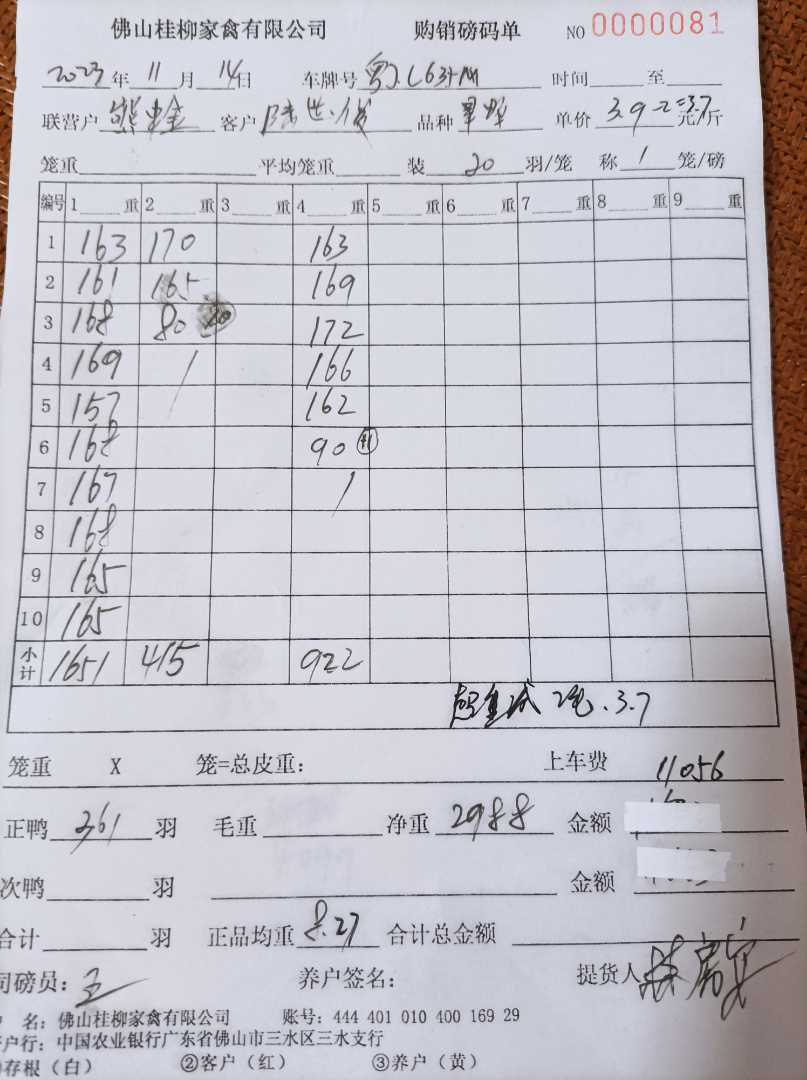 佛山桂柳家禽有限公司 购销磅码单 NO 0000081
2023年11月14日 车牌号 时间 至
联营户 客户 陆世 品种 单价 3.9-2=3.7 元/斤
笼重 平均笼重 装 20 羽/笼 称 1 笼/磅
编号 1 重 2 重 3 重 4 重 5 重 6 重 7 重 8 重 9 重
1 163 170 163
2 161 165 169
3 168 80 20 172
4 169 / 166
5 157 162
6 168 90 11
7 167 /
8 168
9 165
10 165
小计 1651 415 922
超重减2毛.3.7
笼重 X 笼=总皮重: 上车费 11056
正鸭 361 羽 毛重 净重 2988 金额
次鸭 羽 金额
合计 羽 正品均重 8.27 合计总金额
司磅员: 王 养户签名: 提货人
户 名: 佛山桂柳家禽有限公司 账号: 444 401 010 400 169 29
开户行: 中国农业银行广东省佛山市三水区三水支行
存根(白) ②客户(红) ③养户(黄)